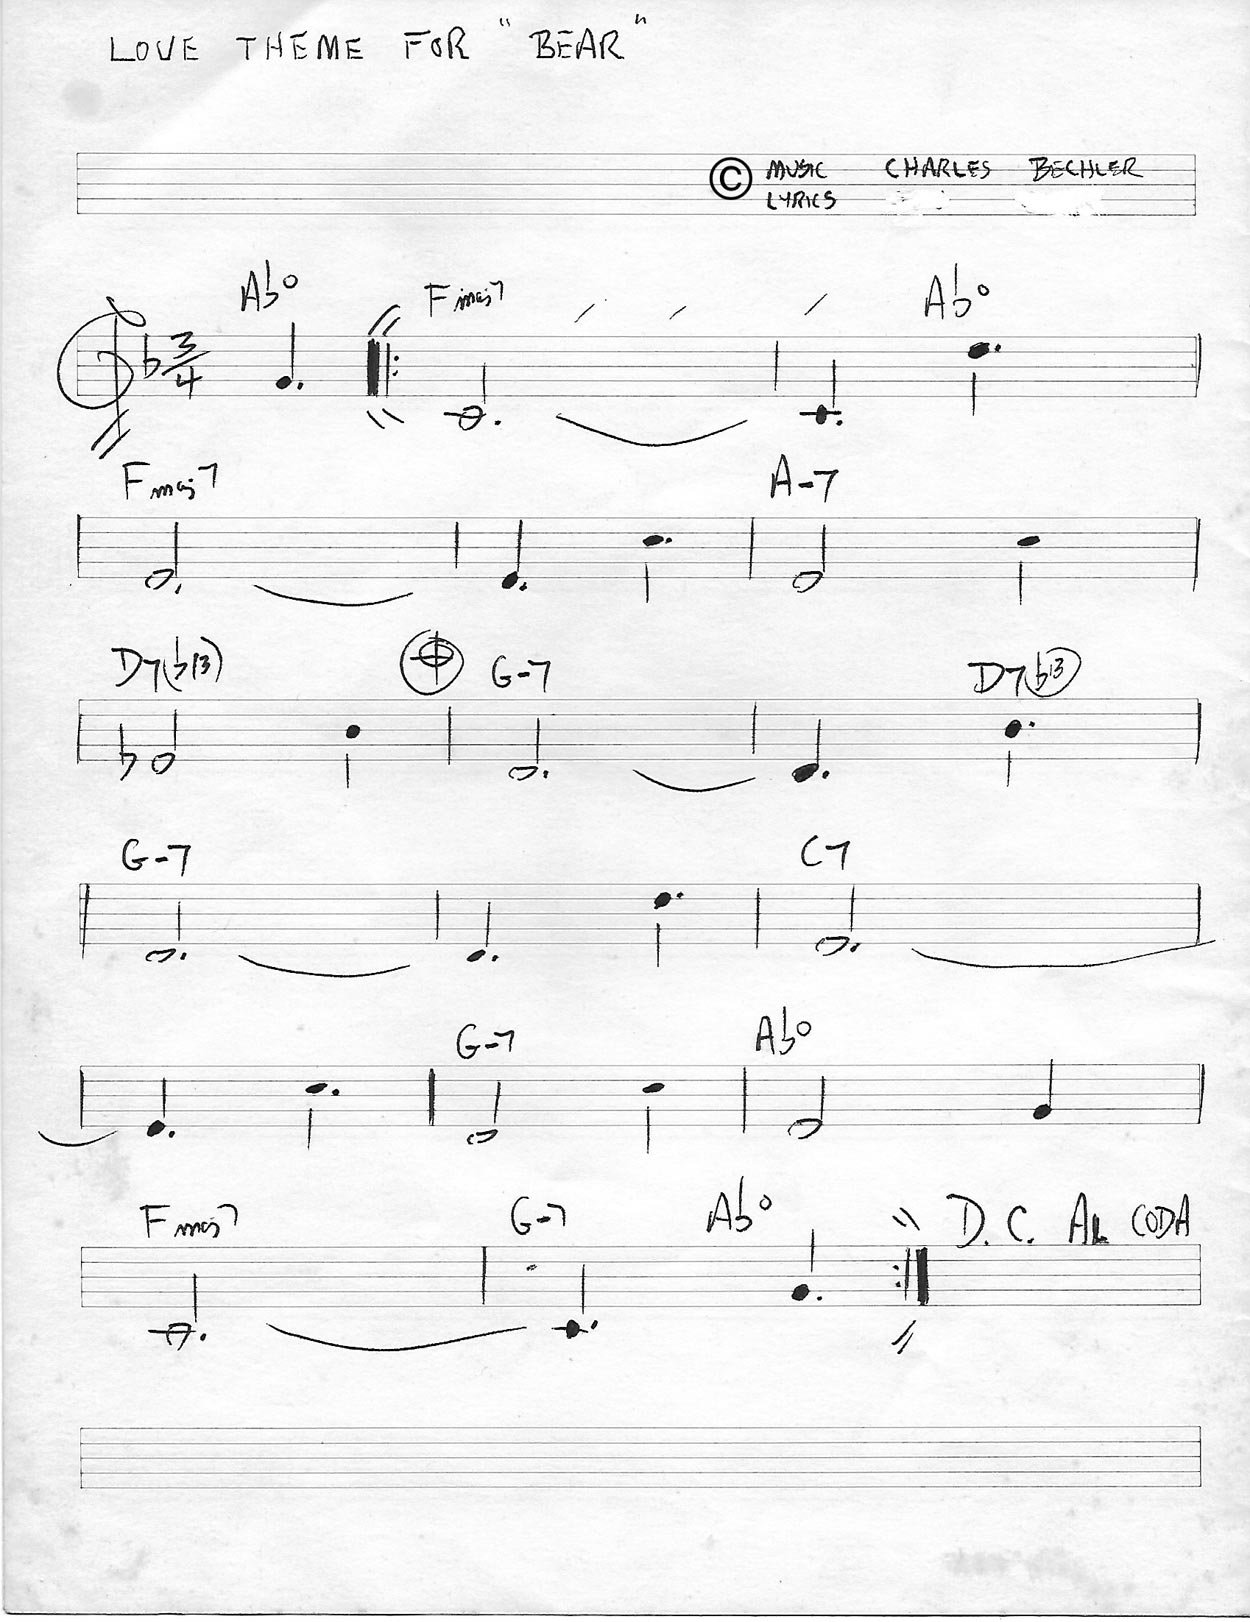 LOVE THEME FOR "BEAR"
© MUSIC CHARLES BECHLER
LYRICS
3/4
Ab° Fmaj7 Ab°
Fmaj7 A-7
D7(b13) G-7 D7(b13)
G-7 C7
G-7 Ab°
Fmaj7 G-7 Ab° D.C. AL CODA